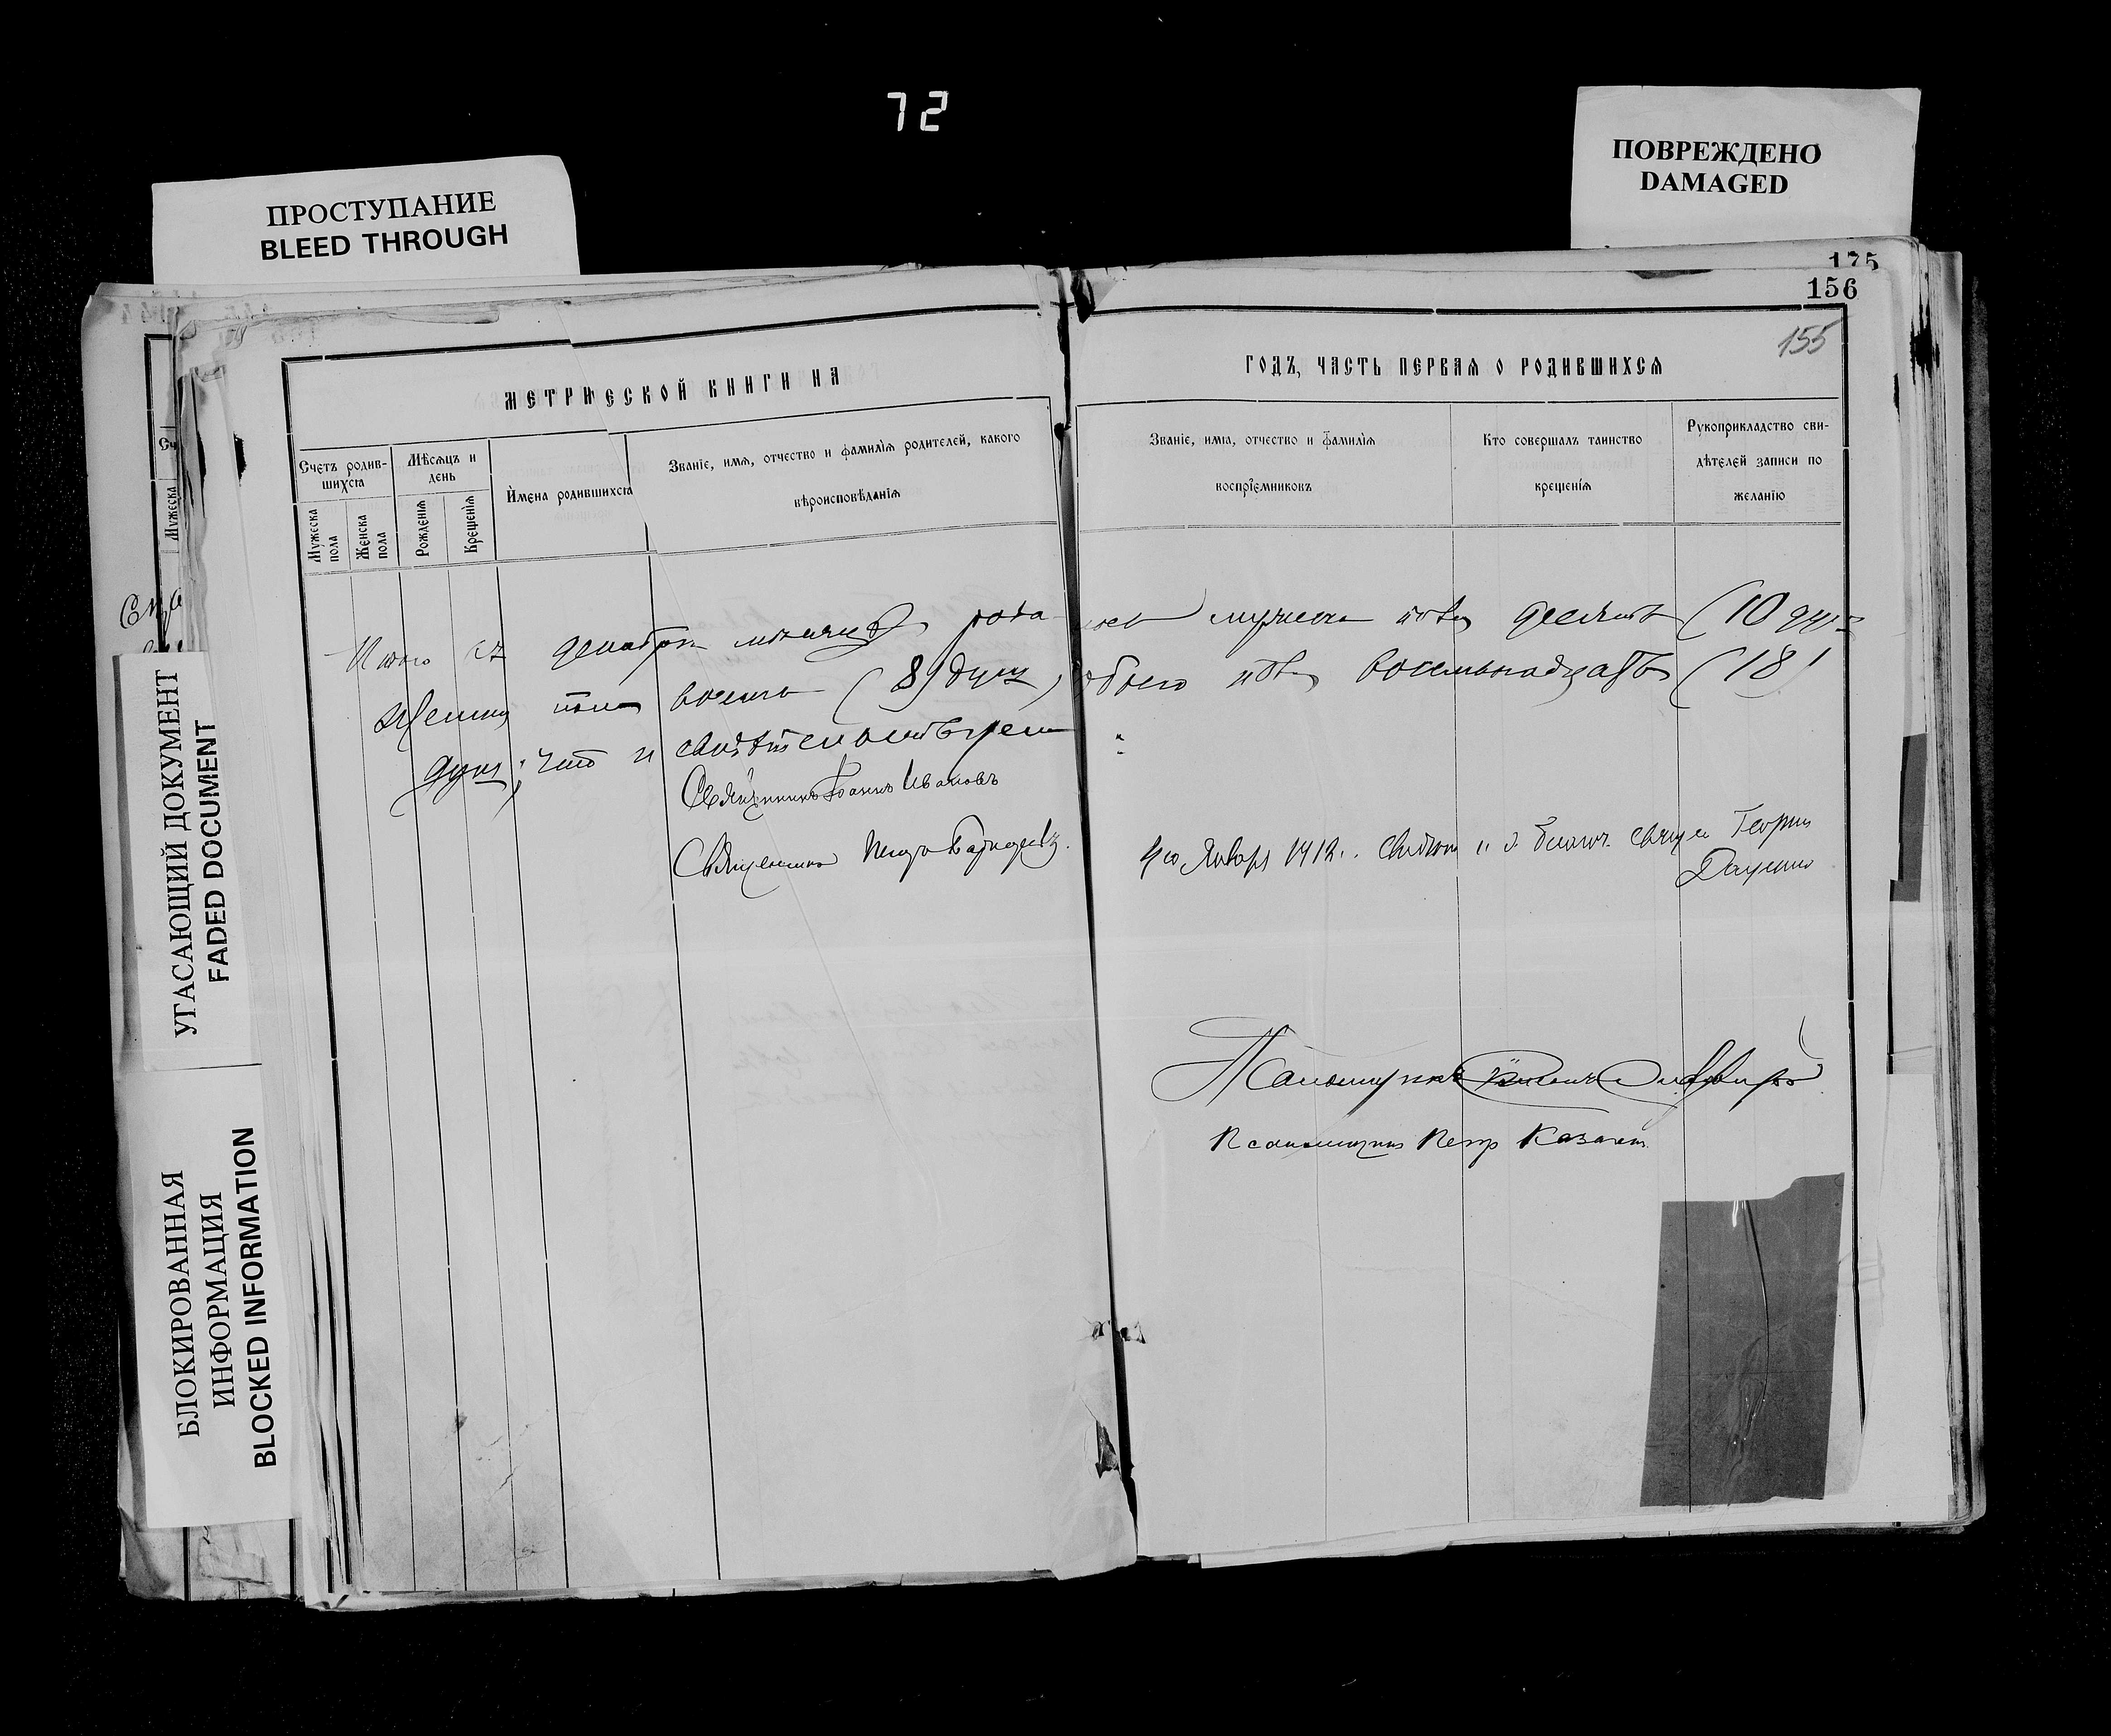 72
ПРОСТУПАНИЕ
BLEED THROUGH
ПОВРЕЖДЕНО
DAMAGED
175
156
155
УГАСАЮЩИЙ ДОКУМЕНТ
FADED DOCUMENT
БЛОКИРОВАННАЯ
ИНФОРМАЦИЯ
BLOCKED INFORMATION
МЕТРИЧЕСКОЙ КНИГИ НА
ГОДЪ, ЧАСТЬ ПЕРВАЯ О РОДИВШИХСЯ
Счетъ родив-
шихся
Мѣсяцъ и
день
Имена родившихся
Званіе, имя, отчество и фамилія родителей, какого
вѣроисповѣданія
Мужеска
пола
Женска
пола
Рожденія
Крещенія
Званіе, имя, отчество и фамилія
воспріемниковъ
Кто совершалъ таинство
крещенія
Рукоприкладство сви-
дѣтелей записи по
желанію
Итого въ декабрѣ мѣсяцѣ мужеска пола десять (10 душъ
женска пола восемь (8) душъ, обоего пола восемьнадцать (18)
душъ; что и свидѣтельствуемъ:
Священникъ Іоаннъ Ивановъ
Священникъ Петръ
Января 1912 г. Георгій
Псаломщикъ
Псаломщикъ Петръ Казанъ